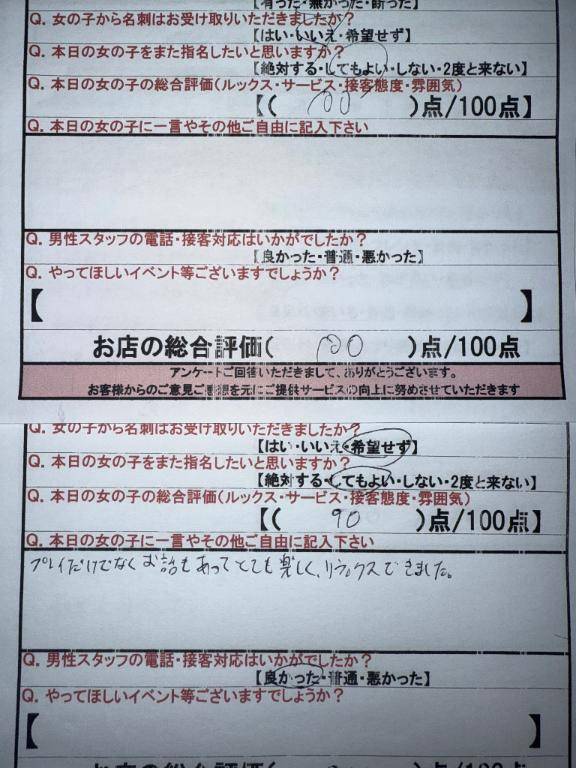 【有った・無かった・断った】
Q. 女の子から名刺はお受け取りいただきましたか?
【はい・いいえ・希望せず】
Q. 本日の女の子をまた指名したいと思いますか?
【絶対する・してもよい・しない・2度と来ない】
Q. 本日の女の子の総合評価(ルックス・サービス・接客態度・雰囲気)
【( 100 )点/100点】
Q. 本日の女の子に一言やその他ご自由に記入下さい
Q. 男性スタッフの電話・接客対応はいかがでしたか?
【良かった・普通・悪かった】
Q. やってほしいイベント等ございますでしょうか?
【 】
お店の総合評価( )点/100点
アンケートご回答いただきまして、ありがとうございます。
お客様からのご意見ご感想を元にご提供サービスの向上に努めさせていただきます
Q. 女の子から名刺はお受け取りいただきましたか?
【はい・いいえ・希望せず】
Q. 本日の女の子をまた指名したいと思いますか?
【絶対する・してもよい・しない・2度と来ない】
Q. 本日の女の子の総合評価(ルックス・サービス・接客態度・雰囲気)
【( 90 )点/100点】
Q. 本日の女の子に一言やその他ご自由に記入下さい
プレイだけでなくお話もあってとても楽しく、リラックスできました。
Q. 男性スタッフの電話・接客対応はいかがでしたか?
【良かった・普通・悪かった】
Q. やってほしいイベント等ございますでしょうか?
【 】